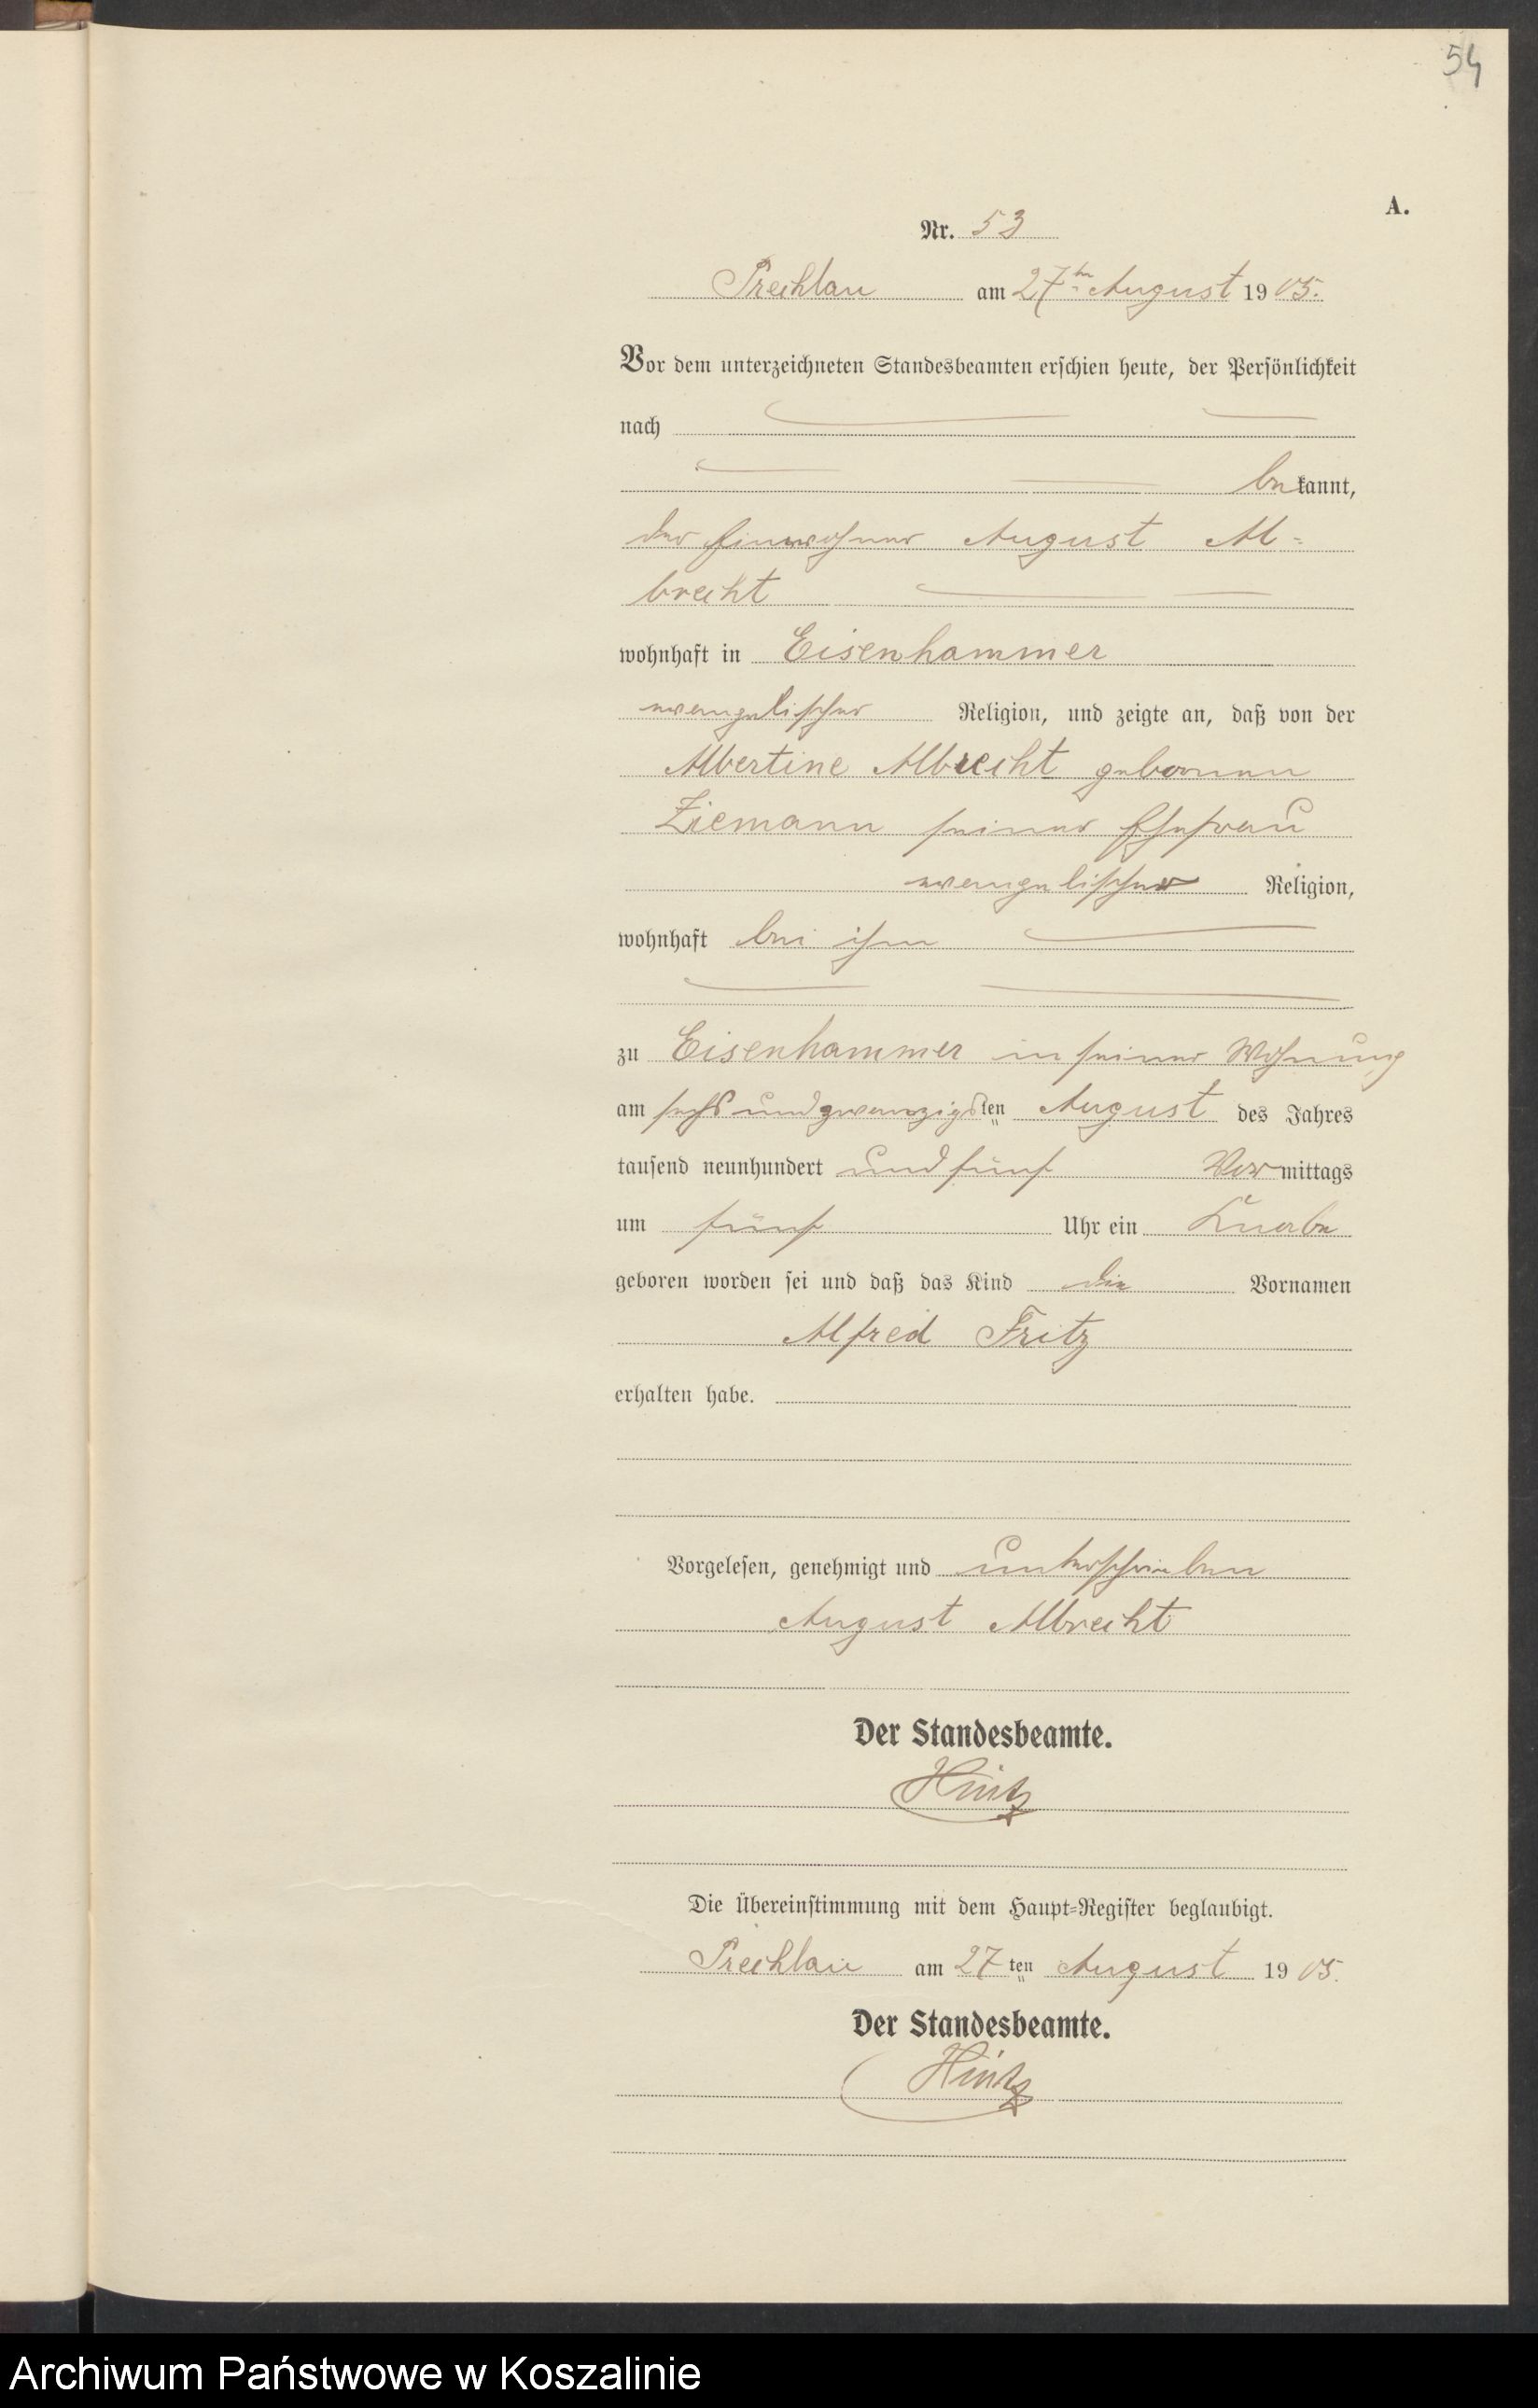 54
A.
Nr. 53
Prechlau am 27ten August 1905.
Vor dem unterzeichneten Standesbeamten erschien heute, der Persönlichkeit
nach
bekannt,
der Einwohner August Al=
brecht
wohnhaft in Eisenhammer
evangelischer Religion, und zeigte an, daß von der
Albertine Albrecht geborenen
Ziemann seiner Ehefrau
evangelischer Religion,
wohnhaft bei ihm
zu Eisenhammer in seiner Wohnung
am sechs und zwanzigsten August des Jahres
tausend neunhundert und fünf Vormittags
um fünf Uhr ein Knabe
geboren worden sei und daß das Kind die Vornamen
Alfred Fritz
erhalten habe.
Vorgelesen, genehmigt und unterschrieben
August Albrecht
Der Standesbeamte.
Hintz
Die Übereinstimmung mit dem Haupt=Register beglaubigt.
Prechlau am 27ten August 1905.
Der Standesbeamte.
Hintz
Archiwum Państwowe w Koszalinie